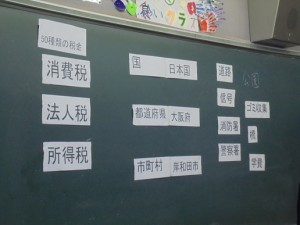 良いクラス
50種類の税金
消費税
法人税
所得税
国 日本国
都道府県 大阪府
市町村 岸和田市
道路
信号
消防署
警察署
公園
ゴミ収集
橋
学費